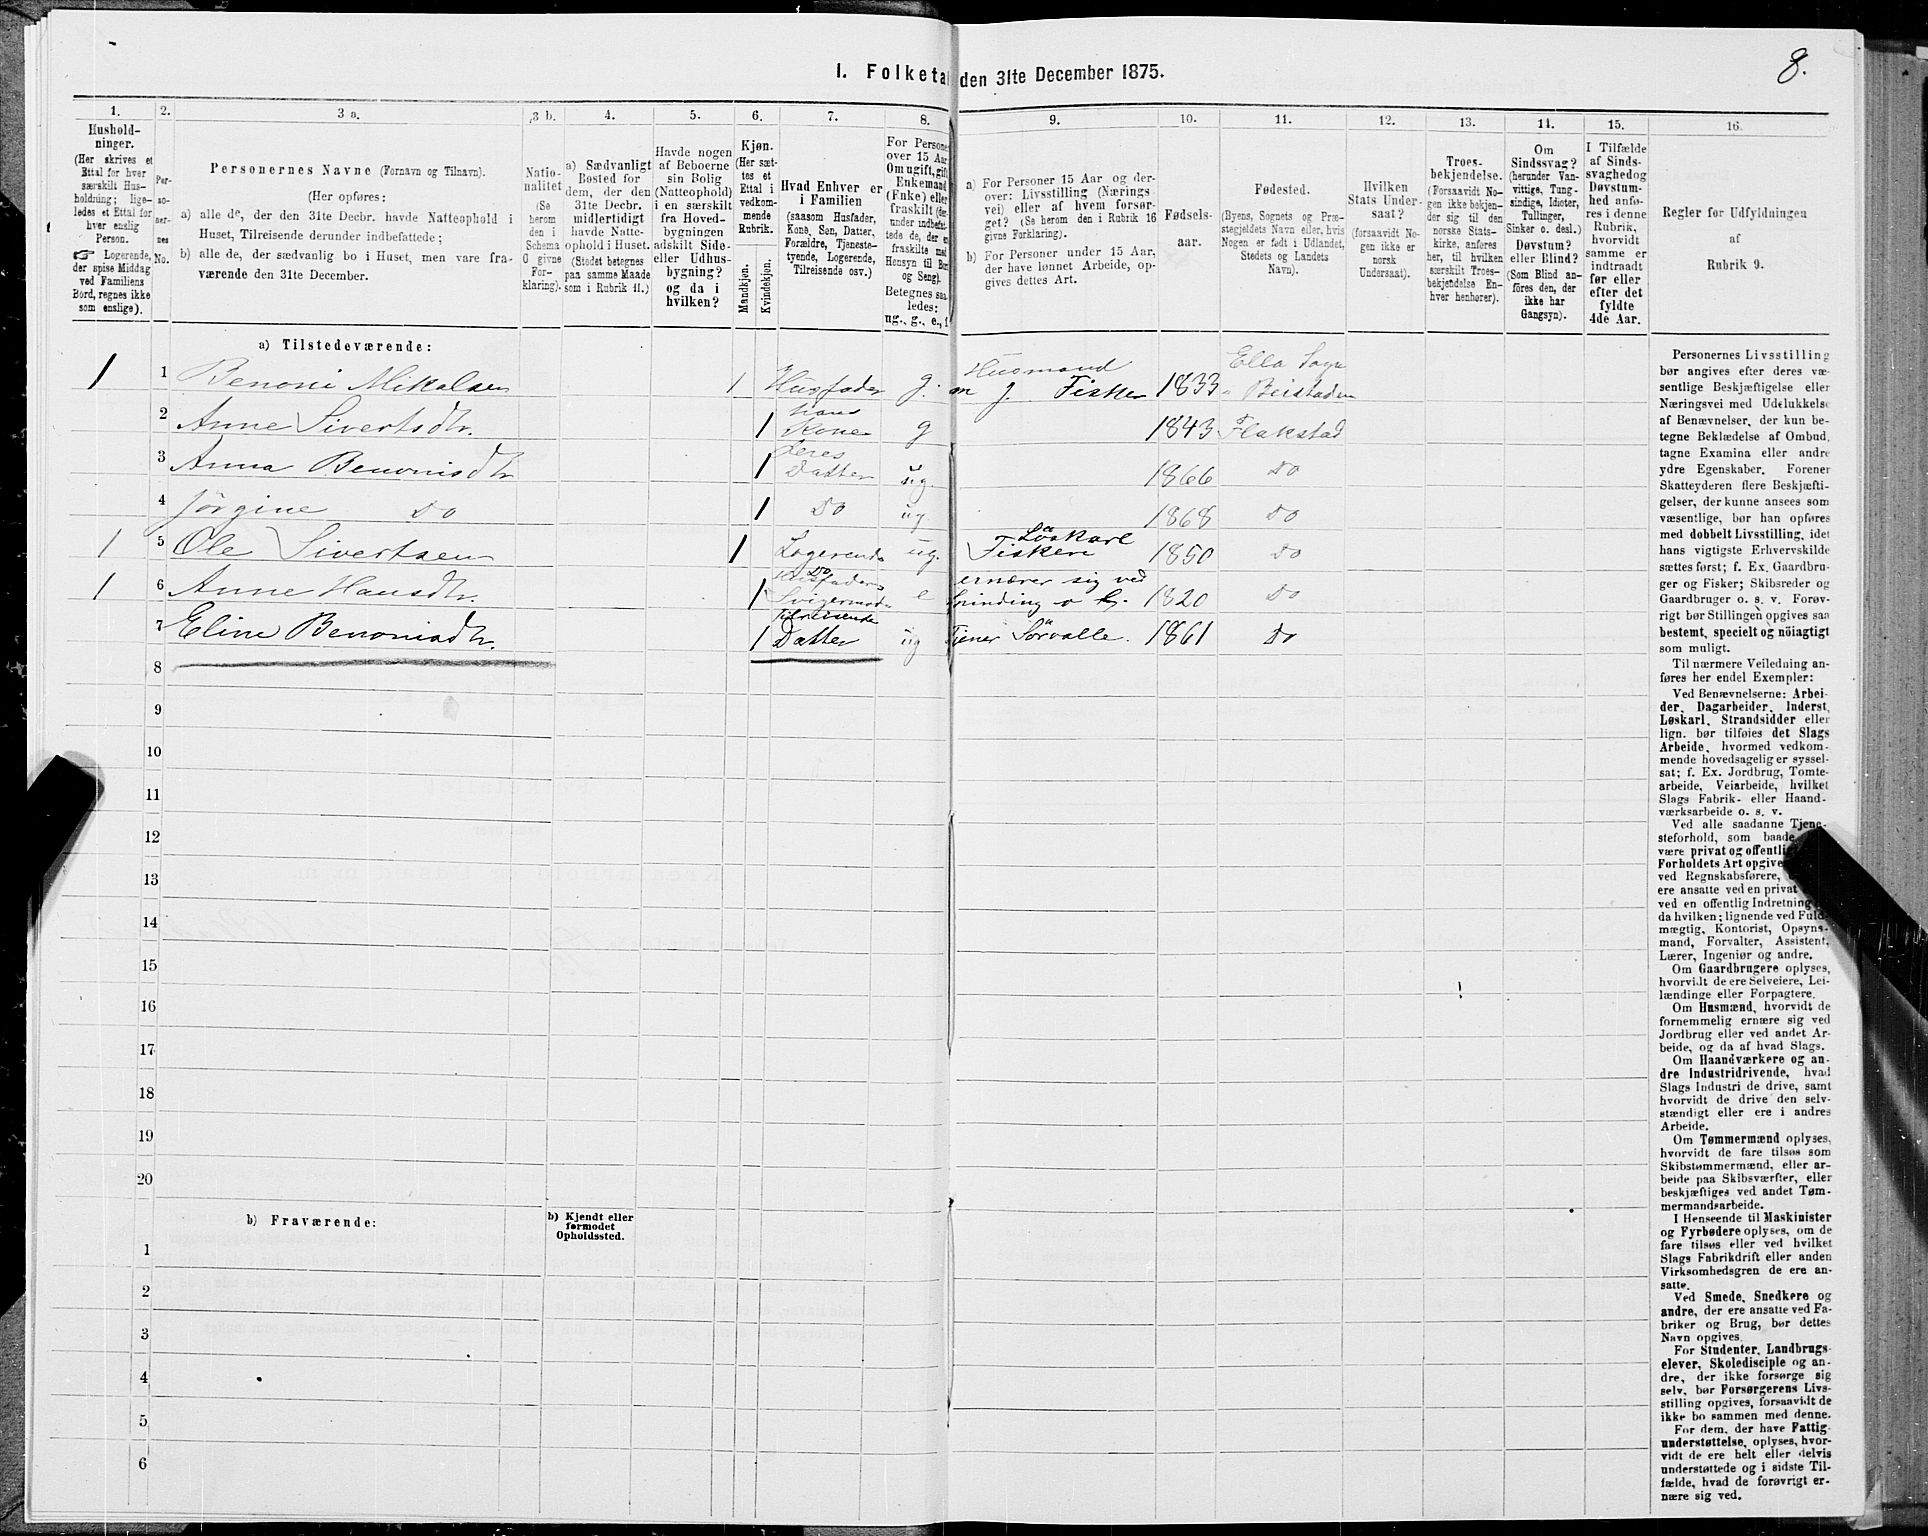 8.
I. Folketal den 31te December 1875.
1.
2.
3 a.
3 b.
4.
5.
6.
7.
8.
9.
10.
11.
12.
13.
14.
15.
16.
Hushold-
ninger.
(Her skrives et
Ettal for hver
særskilt Hus-
holdning; lige-
ledes et Ettal for
hver enslig
Person.
☞ Logerende,
der spise Middag
ved Familiens
Bord, regnes ikke
som enslige).
Per-
so-
ner-
nes
No.
Personernes Navne (Fornavn og Tilnavn).
(Her opføres:
a) alle de, der den 31te Decbr. havde Natteophold i
Huset, Tilreisende derunder indbefattede;
b) alle de, der sædvanlig bo i Huset, men vare fra-
værende den 31te December.
Natio-
nalitet
(Se
herom
den i
Schema
O givne
For-
klaring).
a) Sædvanligt
Bosted for
dem, der den
31te Decbr.
midlertidigt
havde Natte-
ophold i Huset.
(Stedet betegnes
paa samme Maade
som i Rubrik 11.)
Havde nogen
af Beboerne
sin Bolig
(Natteophold)
i en særskilt
fra Hoved-
bygningen
adskilt Side-
eller Udhus-
bygning?
og da i
hvilken?
Kjøn.
(Her sæt-
tes et
Ettal i
vedkom-
mende
Rubrik.
Mandkjøn.
Kvindekjøn.
Hvad Enhver er
i Familien
(saasom Husfader,
Kone, Søn, Datter,
Forældre, Tjeneste-
tyende, Logerende,
Tilreisende osv.)
For Persone
over 15 Aar
Om ugift, gift
Enkemand
(Enke) eller
fraskilt (der-
under indbefat-
tede de, der er
fraskilte med
Hensyn til Bord
og Seng).
Betegnes saa-
ledes:
ug., g., e., f
a) For Personer 15 Aar og der-
over: Livsstilling (Nærings-
vei) eller af hvem forsør-
get? (Se herom den i Rubrik 16
givne Forklaring).
b) For Personer under 15 Aar,
der have lønnet Arbeide, op-
gives dettes Art.
Fødsels-
aar.
Fødested.
(Byens, Sognets og Præ-
stegjeldets Navn eller, hvis
Nogen er født i Udlandet,
Stedets og Landets
Navn).
Hvilken
Stats Under-
saat?
(forsaavidt No-
gen ikke er
norsk
Undersaat).
Troes-
bekjendelse.
(Forsaavidt No-
gen ikke bekjen-
der sig til den
norske Stats-
kirke, anføres
her, til hvilken
særskilt Troes-
bekjendelse En-
hver henhører).
Om
Sindssvag?
(herunder Van-
vittige, Tung-
sindige, Idioter,
Tullinger,
Sinker o. desl.)
Døvstum?
eller Blind?
(Som Blind an-
føres den, der
ikke har
Gangsyn).
I Tilfælde
af Sinds-
svaghedog
Døvstum-
hed anfø-
res i denne
Rubrik,
hvorvidt
samme er
indtraadt
før eller
efter det
fyldte
4de Aar.
Regler for Udfyldningen
af
Rubrik 9.
a) Tilstedeværende:
1 1 Benoni Mikalsen 1 Husfader g. Husmand m J. Fisker 1833 Ella Sogn Beistaden
2 Anne Sivertsdtr. 1 hans Kone g 1843 Flakstad
3 Anna Benonisdtr 1 deres Datter ug. 1866 Do
4 Jörgine Do 1 Do ug 1868 Do
1 5 Ole Sivertsen 1 Logerende ug. Löskarl Fiskeri 1850 Do
1 6 Anne Hansdtr. 1 Do Husfaders Svigermoder e ernærer sig ved Spinding o 1820 Do
7 Eline Benonisdtr. 1 Tilreisende Datter ug Tjener Sörvalle. 1861 Do
8
9
10
11
12
13
14
15
16
17
18
19
20
b) Fraværende:
b) Kjendt eller
formodet
Opholdssted.
1
2
3
4
5
6
Personernes Livsstilling
bør angives efter deres væ-
sentlige Beskjæftigelse eller
Næringsvei med Udelukkelse
af Benævnelser, der kun be-
tegne Beklædelse af Ombud,
tagne Examina eller andre
ydre Egenskaber. Forener
Skatteyderen flere Beskjæfti-
gelser, der kunne ansees som
væsentlige, bør han opføres
med dobbelt Livsstilling, idet
hans vigtigste Erhvervskilde
sættes først; f. Ex. Gaardbru-
ger og Fisker; Skibsreder og
Gaardbruger o. s. v. Forøv-
rigt bør Stillingen opgives saa
bestemt, specielt og nöiagtigt
som muligt.
Til nærmere Veiledning an-
føres her endel Exempler:
Ved Benævnelserne: Arbei-
der, Dagarbeider, Inderst,
Løskarl, Strandsidder eller
lign. bør tilføies det Slags
Arbeide, hvormed vedkom-
mende hovedsagelig er syssel-
sat; f. Ex. Jordbrug, Tomte-
arbeide, Veiarbeide, hvilket
Slags Fabrik- eller Haand-
værksarbeide o. s. v.
Ved alle saadanne Tjene-
steforhold, som baade
være privat og offentlig
Forholdets Art opgive
ved Regnskabsførere,
ere ansatte ved en privat
ved en offentlig Indretning
da hvilken; lignende ved Fuld-
mægtig, Kontorist, Opsyns-
mand, Forvalter, Assistent,
Lærer, Ingeniør og andre.
Om Gaardbrugere oplyses,
hvorvidt de ere Selveiere, Lei-
lændinge eller Forpagtere.
Om Husmænd, hvorvidt de
fornemmelig ernære sig ved
Jordbrug eller ved andet Ar-
beide, og da af hvad Slags.
Om Haandværkere og an-
dre Industridrivende, hvad
Slags Industri de drive, samt
hvorvidt de drive den selv-
stændigt eller ere i andres
Arbeide.
Om Tømmermænd oplyses,
hvorvidt de fare tilsøs som
Skibstømmermænd, eller ar-
beide paa Skibsværfter, eller
beskjæftiges ved andet Tøm-
mermandsarbeide.
I Henseende til Maskinister
og Fyrbødere oplyses, om de
fare tilsøs eller ved hvilket
Slags Fabrikdrift eller anden
Virksomhedsgren de ere an-
satte.
Ved Smede, Snedkere og
andre, der ere ansatte ved Fa-
briker og Brug, bør dettes
Navn opgives.
For Studenter, Landbrugs-
elever, Skoledisciple og an-
dre, der ikke forsørge sig
selv, bør Forsørgerens Livs-
stilling opgives, forsaavidt de
ikke bo sammen med denne.
For dem, der have Fattig-
understøttelse, oplyses, hvor-
vidt de ere helt eller delvis
understøttede og i sidste Til-
fælde, hvad de forøvrigt er-
nære sig ved.